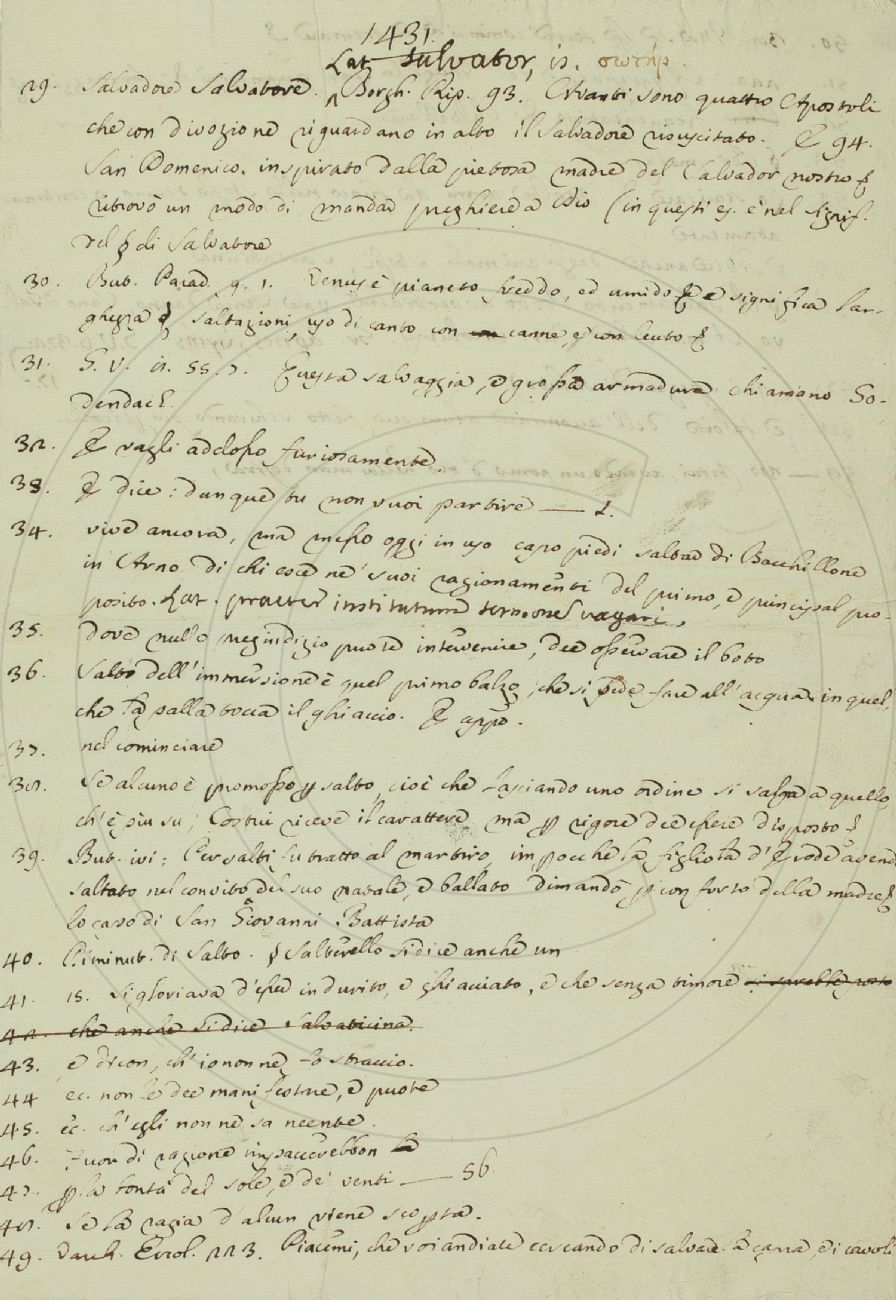 1431.
Lat. Salvator, is. σωτήρ.
29. Salvadore Salvatore. Borgh. Rip. 93. Avanti sono quattro Apostoli
che con divozione riguardano in alto il Salvadore risuscitato. E 94.
San Domenico, inspirato dalla pietosa madre del Salvador nostro
ritrovò un modo di mandar preghiere a Dio (in questi es. è nel signif.
del § di Salvatore
30. But. Parad. 9. 1. Venus è pianeto freddo, ed umido E e significa lar-
ghezza saltazioni, uso di canto con canne, e con leuto
31. S. V. is. 55. 7. Questa salvaggia, e grossa armadura chiamano So-
dendach.
32. E vagli addosso furiosamente.
33. E dice: dunque tu non vuoi partire — 1.
34. vive ancora, ma messo oggi in uso capo piedi saltar di Bacchillone
in Arno di chi esce ne' suoi ragionamenti del primo, e principal pro-
posito. Lat. praeter institutum sermones vagari.
35. dove nullo pregiudizio puote intervenire, dee osservare il boto
36. Salto dell'immersione è quel primo balzo, che si vede fare all'acqua in quel,
che la palla tocca il ghiaccio. E app.
37. nel cominciare
38. Se alcuno è promosso p salto, cioè che lasciando uno ordine si salga a quello
ch'è più su; Costui riceve il carattere, ma p rigore dee essere disposto
39. But. ivi: Per salti fu tratto al martiro, impocche la figliola d'Erode avend
saltato nel convito del suo natale, e ballato dimandò p conforto della madre
lo capo di San Giovanni Battista
40. Diminut. di Salto. § Salterello si dice anche un
41. 15. si gloriava d'esser indurito, e ghiacciato, e che senza timore
42. che anche si dice Salvaticina.
43. e dicon, ch'io non ne fo straccio.
44 ec. non le dee manifestare, e puote
45. ec. ch'egli non ne sa neente.
46. Fuor di ragione impaccerebbon la
47. p la bontà del sole, e de' venti — 56
48. Se la ragia d'alcun viene scopta.
49. Varch. Ercol. 223. Piacemi, che voi andiate cercando di salvare la capra, e i cavoli